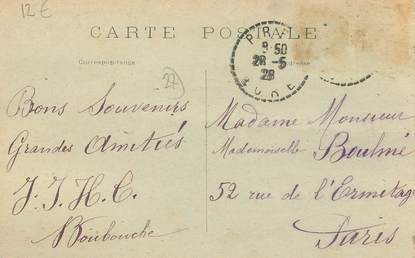 12 €
CARTE POSTALE
Correspondance
27
8 50
28 -5
28
EURE
Bons Souvenirs
Grandes Amitiés
J. J. H. C.
Boubouche
Madame Monsieur
Mademoiselle Boulmé
52 rue de l'Ermitage
Paris